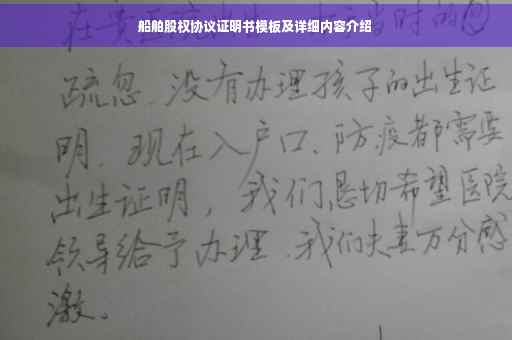 船舶股权协议证明书模板及详细内容介绍
疏忽、没有办理孩子的出生证
明、现在入户口、防疫都需要
出生证明，我们恳切希望医院
领导给予办理、我们夫妻万分感
激。